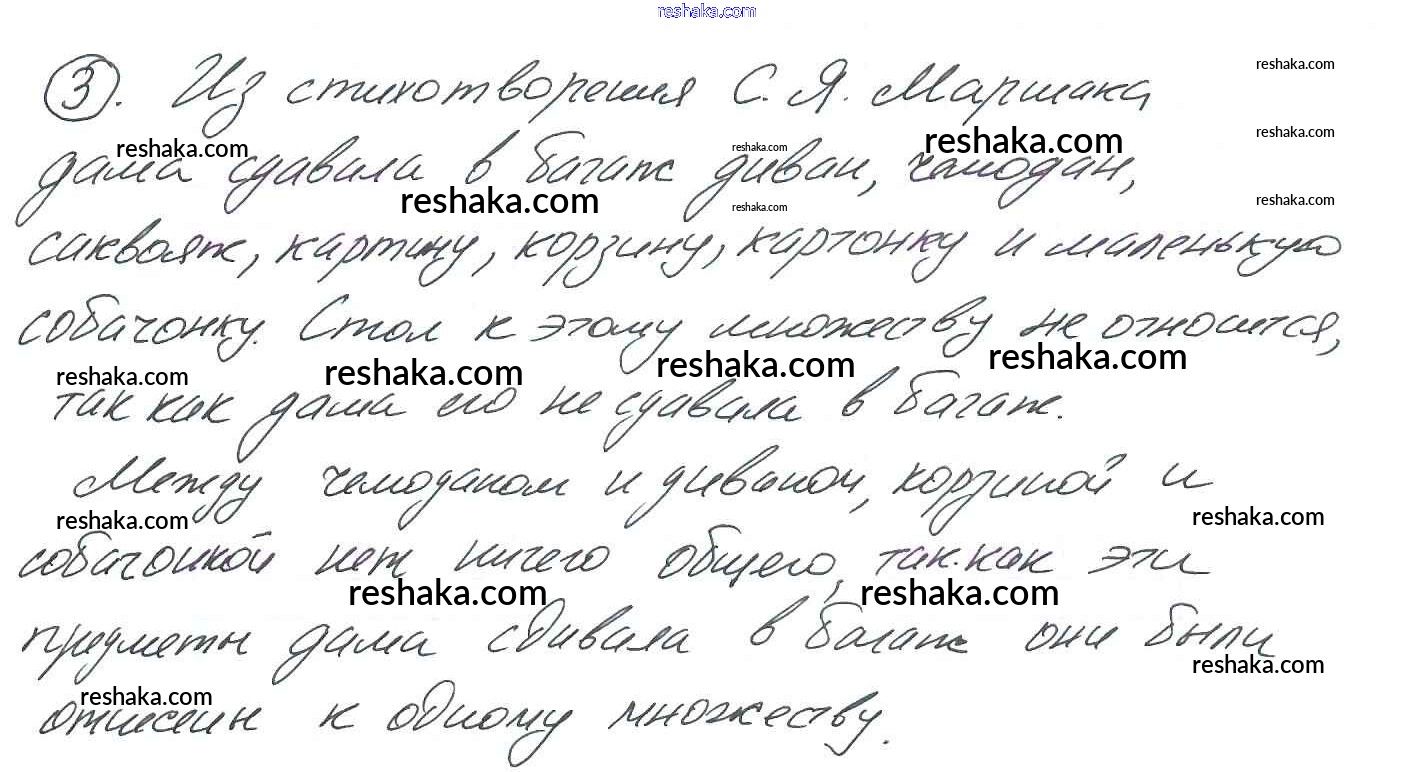 reshaka.com
3. Из стихотворения С. Я. Маршака
reshaka.com
reshaka.com
reshaka.com
reshaka.com
reshaka.com
дама сдавала в багаж диван, чемодан,
reshaka.com
reshaka.com
reshaka.com
саквояж, картину, корзину, картонку и маленькую
собачонку. Стол к этому множеству не относится,
reshaka.com
reshaka.com
reshaka.com
reshaka.com
так как дама его не сдавала в багаж.
Между чемоданом и диваном, корзиной и
reshaka.com
reshaka.com
собачонкой нет ничего общего, так как эти
reshaka.com
reshaka.com
предметы дама сдавала в багаж они были
reshaka.com
reshaka.com
отнесены к одному множеству.